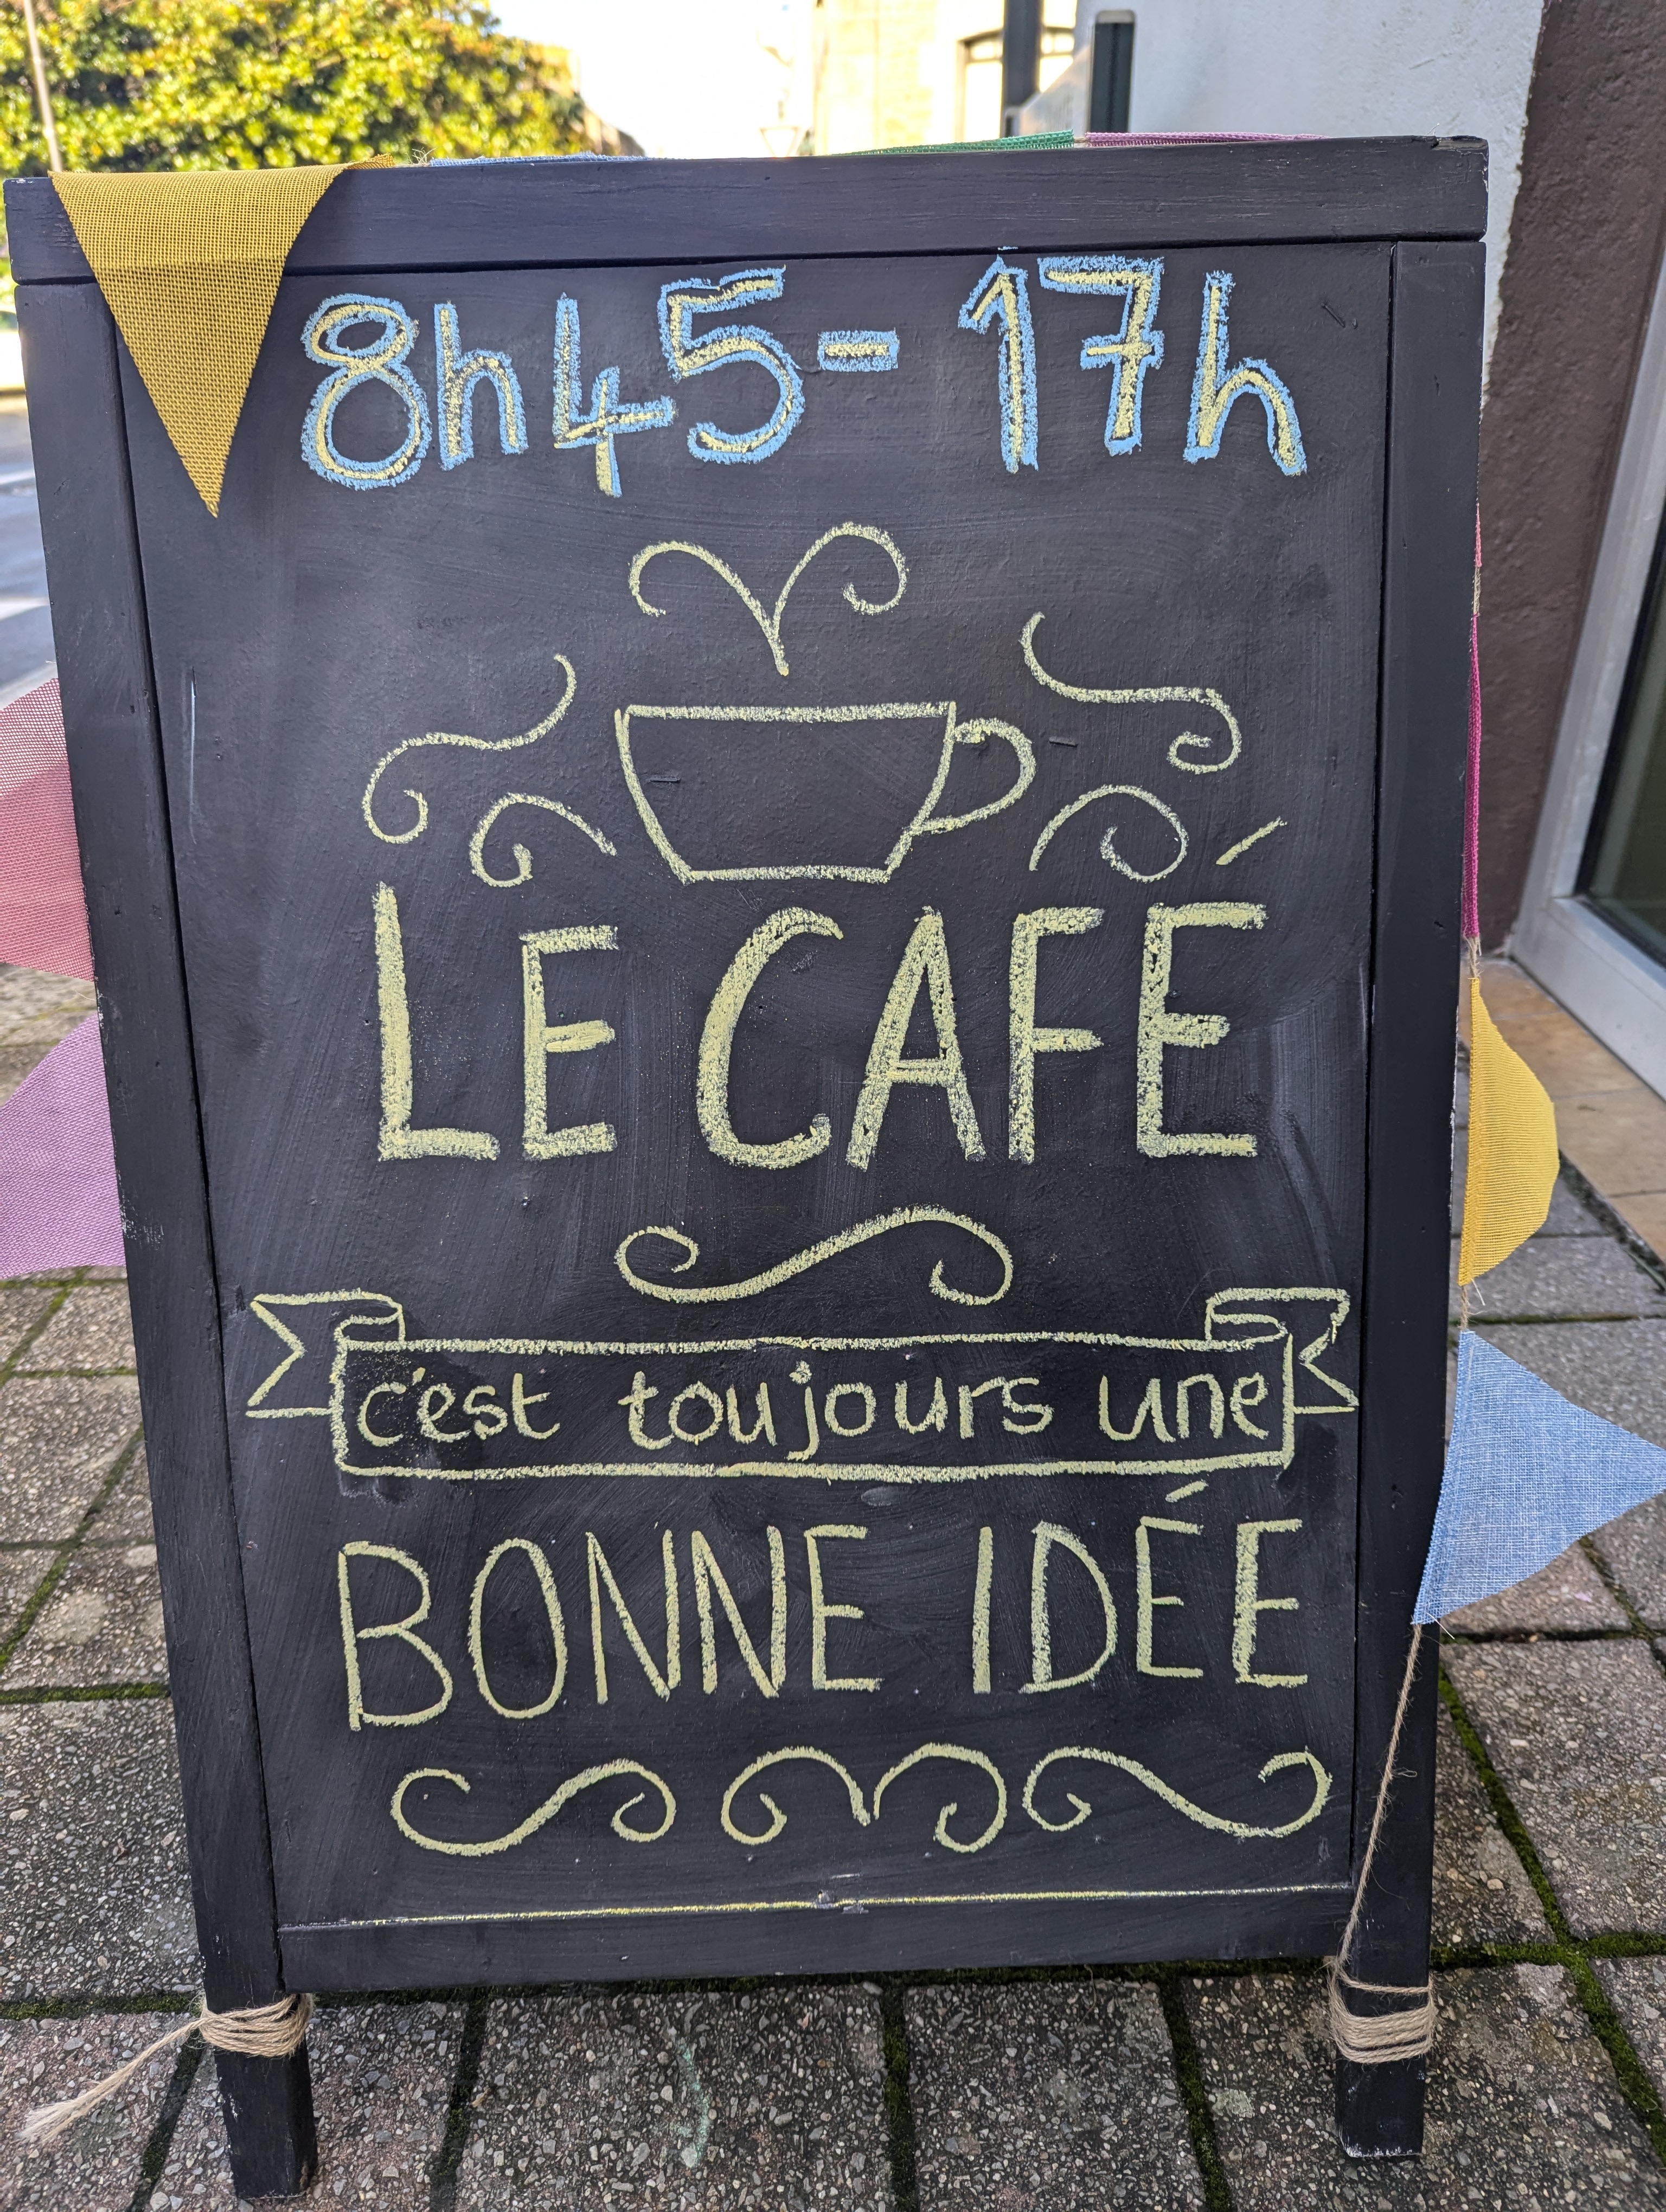 8h45 - 17h
LE CAFÉ
c'est toujours une
BONNE IDÉE